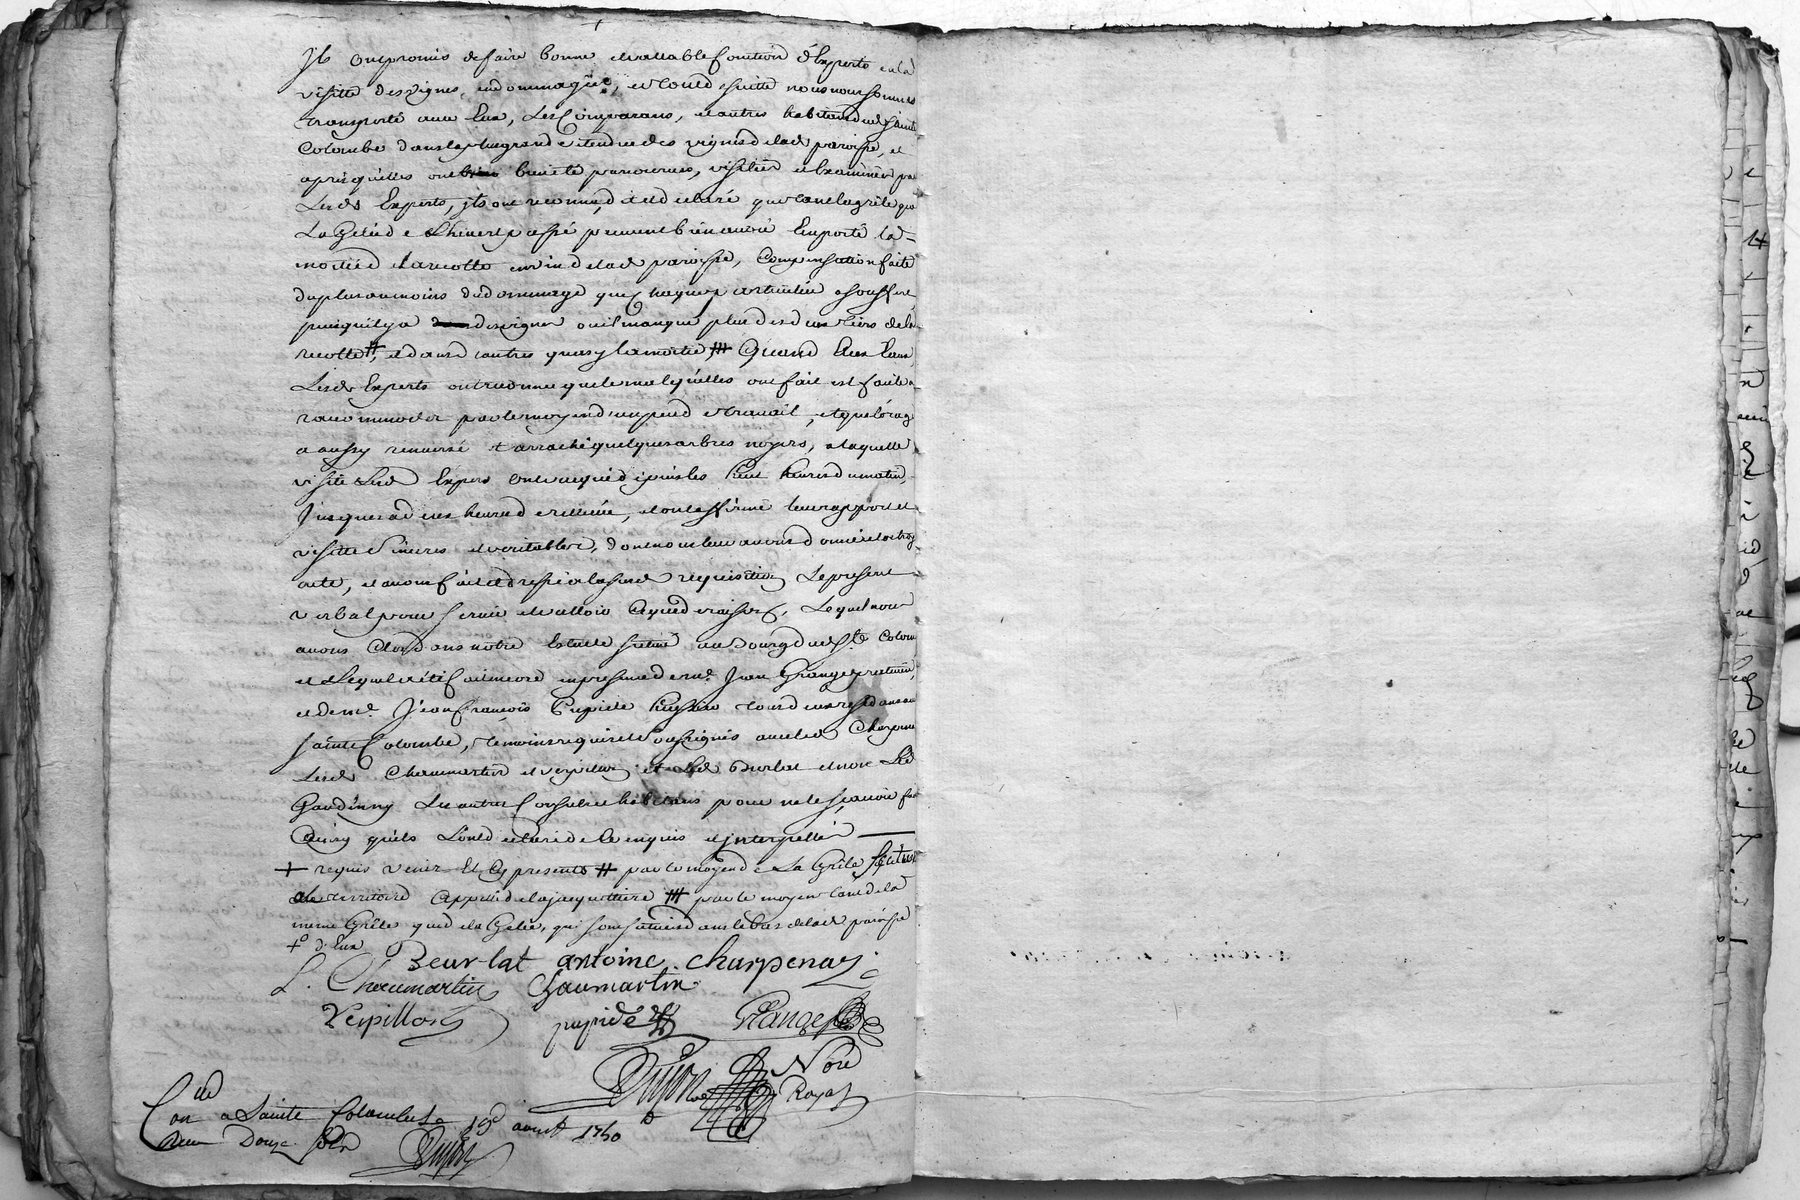 jls ont promis de faire bonne et vallable fonction d'Experts en la
visitte des vignes endommagées, et tout de suitte nous nous sommes
transporté avec Eux, les Comparans, et autres habitans dud Sainte
Colombe dans la plus grande etendue des vignes de lad paroisse, et
apres qu'elles ont bien été parcourues, visitées et Examinées par
Lesds Experts, jls ont reconnu, et declaré que tant la grêle que
La Gelée de L'hiver passé peuvent bien avoir Emporté la
moitié de la recolte en vin de lad paroisse, Compensation faite
du plus au moins du dommage que chaque particulier a souffert,
puisqu'il y a des vignes ou il manque plus des deux tiers de la
recolte #, et dans d'autres quasy la moitié ### Quand aux Eaux,
Lesds Experts ont reconnu que le mal qu'elles ont fait est facile a
racommoder par le moyen d'un peu de travail, et que l'orage
a aussy renversé et arraché quelques arbres noyers, a laquelle
visite Lesd Expers ont vacqué depuis les huit heures du matin,
Jusques a deux heures de relevée, et ont affirmé leur rapport et
visitte sinceres et veritables, dont nous leur avons donné et octroyé
acte, et avons fait et dressé a lasusd requisition Le present
verbal pour servir et valloir Ce que de raison, Lequel nous
avons Clos dans nôtre Estude situé au bourg dud Ste Colombe
et Lequel a été fait
en presence de me Jean Grange praticien,
et de me Jean François Pupide huissier tous deux residans aud
Sainte Colombe, temoins requis et soussignés avec led Charpenay
Lesds Chaumartin et verpillon et Led Beurlat et non Led
Gaudinny Les autres Consuls et habitans pour ne le sçavoir faire
Ainsy qu'ils L'ont declaré de Ce enquis et jnterpellés
+ requis venir Et Cy presents # par le moyen de La Grêle
au territoire Appellé de la jacquettiere ### par le moyen tant de la
meme Grêle que de la Gelée, qui sont situés dans le bas de lad paroisse
+o d'Eux
Beur-lat antoine Charpenay
L. Chaumartin Chaumartin
Verpillon pupide Grange
Dujon Nore
Royal
Con a Sainte Colombe Le 19 aoust 1740
Reçu Douze sols
Dujon